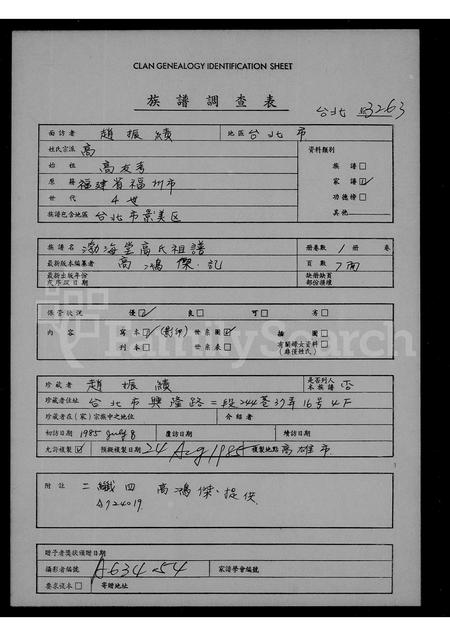 CLAN GENEALOGY IDENTIFICATION SHEET
族譜調查表
台北 3263
面訪者 趙振績 地區 台北市
姓氏宗派 高 資料類別
始祖 高友秀 族譜□
原籍 福建省福州市 家譜☑
世代 4世 功德榜□
族譜包含地區 台北市景美区 其他
族譜名 渤海堂高氏祖譜 冊卷數 1 冊 卷
最新版本編纂者 高鴻傑.記 頁數 7面
最新出版年份或序跋日期 缺冊缺頁部份積壞
保管狀況 優☑ 良□ 可□ 劣□
內容 寫本☑(影印) 世系圖☑ 插圖□
刊本□ 世系表□ 有關婦女資料(非僅姓氏)□
FamilySearch
珍藏者 趙振績 是否列入本族譜 否
珍藏者住址 台北市興隆路二段244巷37弄16号4F
珍藏者在(家)宗族中之地位 介紹者
初訪日期 1985 July 8 覆訪日期 續訪日期
允許複製☑ 預擬複製日期 24 Aug 1985 複製地點 高雄市
附註 二纖四 高鴻傑.提供
A724019
贈予者獎狀頒贈日期
攝影者編號 A634-54 家譜學會編號
要求謄本□ 寄贈地址